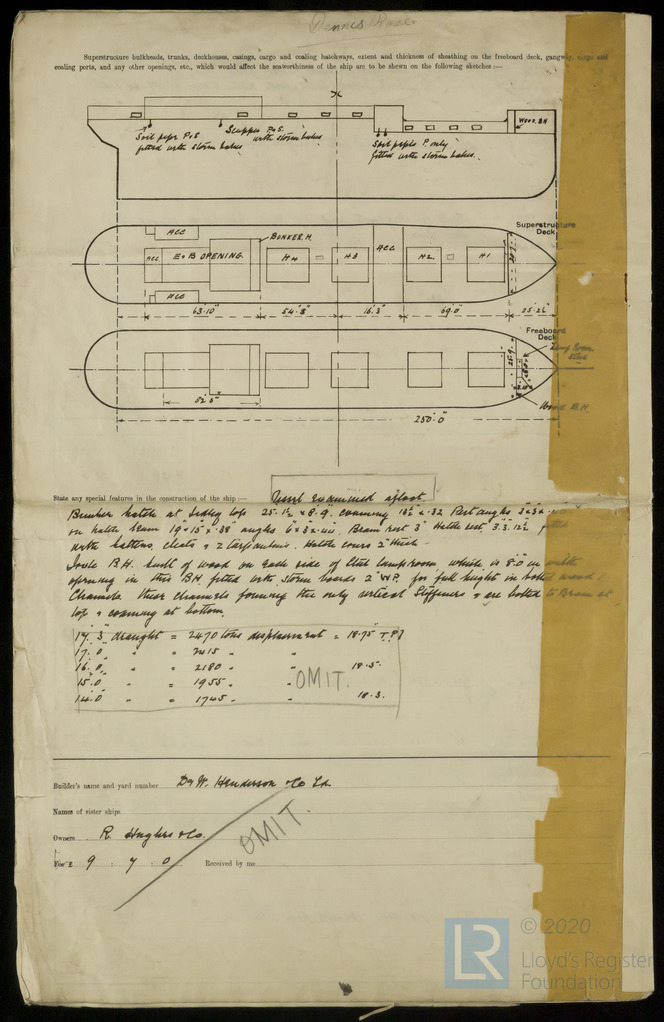 Dennis Rose.
Superstructure bulkheads, trunks, deckhouses, casings, cargo and coaling hatchways, extent and thickness of sheathing on the freeboard deck, gangway, cargo and
coaling ports, and any other openings, etc., which would affect the seaworthiness of the ship are to be shewn on the following sketches :—
Wood BH
Soil pipe P&S
fitted with storm valves
Scupper P&S.
with storm valves
Soil pipes P. only
fitted with storm valves.
Superstructure
Deck.
ACC
BUNKER H.
ACC
E & B OPENING.
H4
H3
ACC
H2.
H1
ACC
63'.10"
54'.8"
16'.3"
69'.0"
25'.2½"
Freeboard
Deck
Lamp Room
Wood B.H.
52'.5"
250'.0"
State any special features in the construction of the ship :—
Vessel examined afloat.
Bunker hatch at Sidley top 25'.1½ x 8'.9". coaming 13½" x .32 Rest angles 3 x 3 x
on hatch beam 19" x 15" x .38" angles 6 x 3 x Beam rest 3" Hatch rest
with battens, cleats & 2 tarpaulins. Hatch covers 2" thick.
B.H. built of wood on each side of lamproom, which is 8'.0" in width
opening in this BH fitted with storm boards 2" W.P. for full height in bolted wood
Channels these channels forming the only vertical stiffeners & are bolted to Beam at
top & coaming at bottom.
17'. 3" draught = 2470 tons displacement = 18.75 T.P.I
17'. 0" " = 2415 " "
16'. 0" " = 2180 " 18.5.
15'. 0" " = 1955 " "
14'. 0" " = 1745 " 18.3.
OMIT.
Builder's name and yard number D & W. Henderson & Co Ld.
Names of sister ships
Owners R. Hughes & Co.
Fee £ 9 . 7 . 0 Received by me
OMIT.
LR
© 2020
Lloyd's Register
Foundation